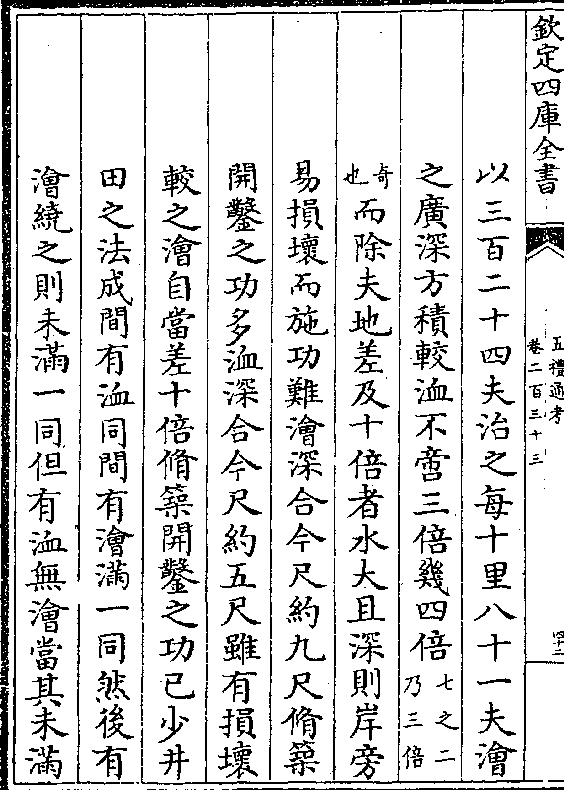 欽定四庫全書
五禮通考
卷二百三十三
四十二
以三百二十四夫治之每十里八十一夫澮
之廣深方積較洫不啻三倍幾四倍七之二乃三倍
奇也而除夫地差及十倍者水大且深則岸旁
易損壞而施功難澮深合今尺約九尺脩築
開鑿之功多洫深合今尺約五尺雖有損壞
較之澮自當差十倍脩築開鑿之功已少井
田之法成間有洫同間有澮滿一同然後有
澮繞之則未滿一同但有洫無澮當其未滿